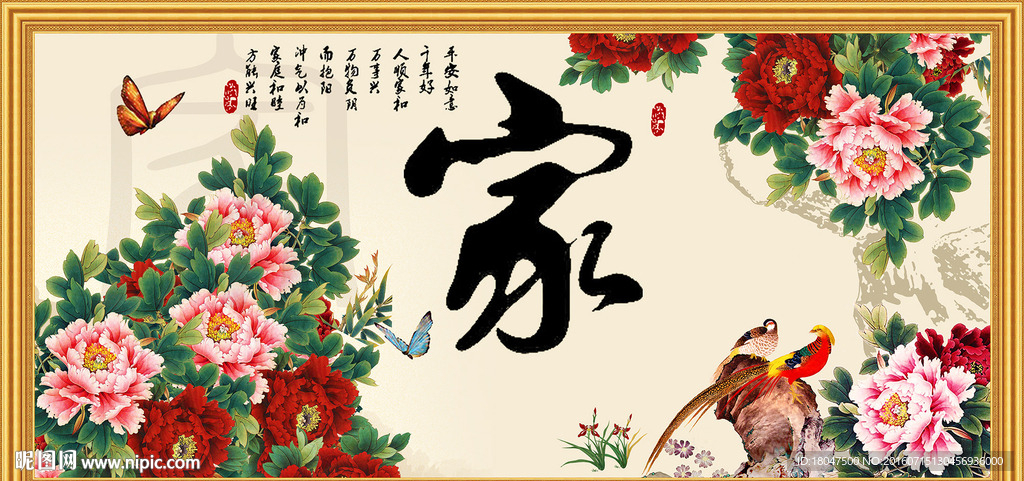 平安如意
千年好
人顺家和
万事兴
万物负阴
而抱阳
冲气以为和
家庭和睦
方能兴旺
家
昵图网 www.nipic.com
ID:18047500 NO:20160715130456936000